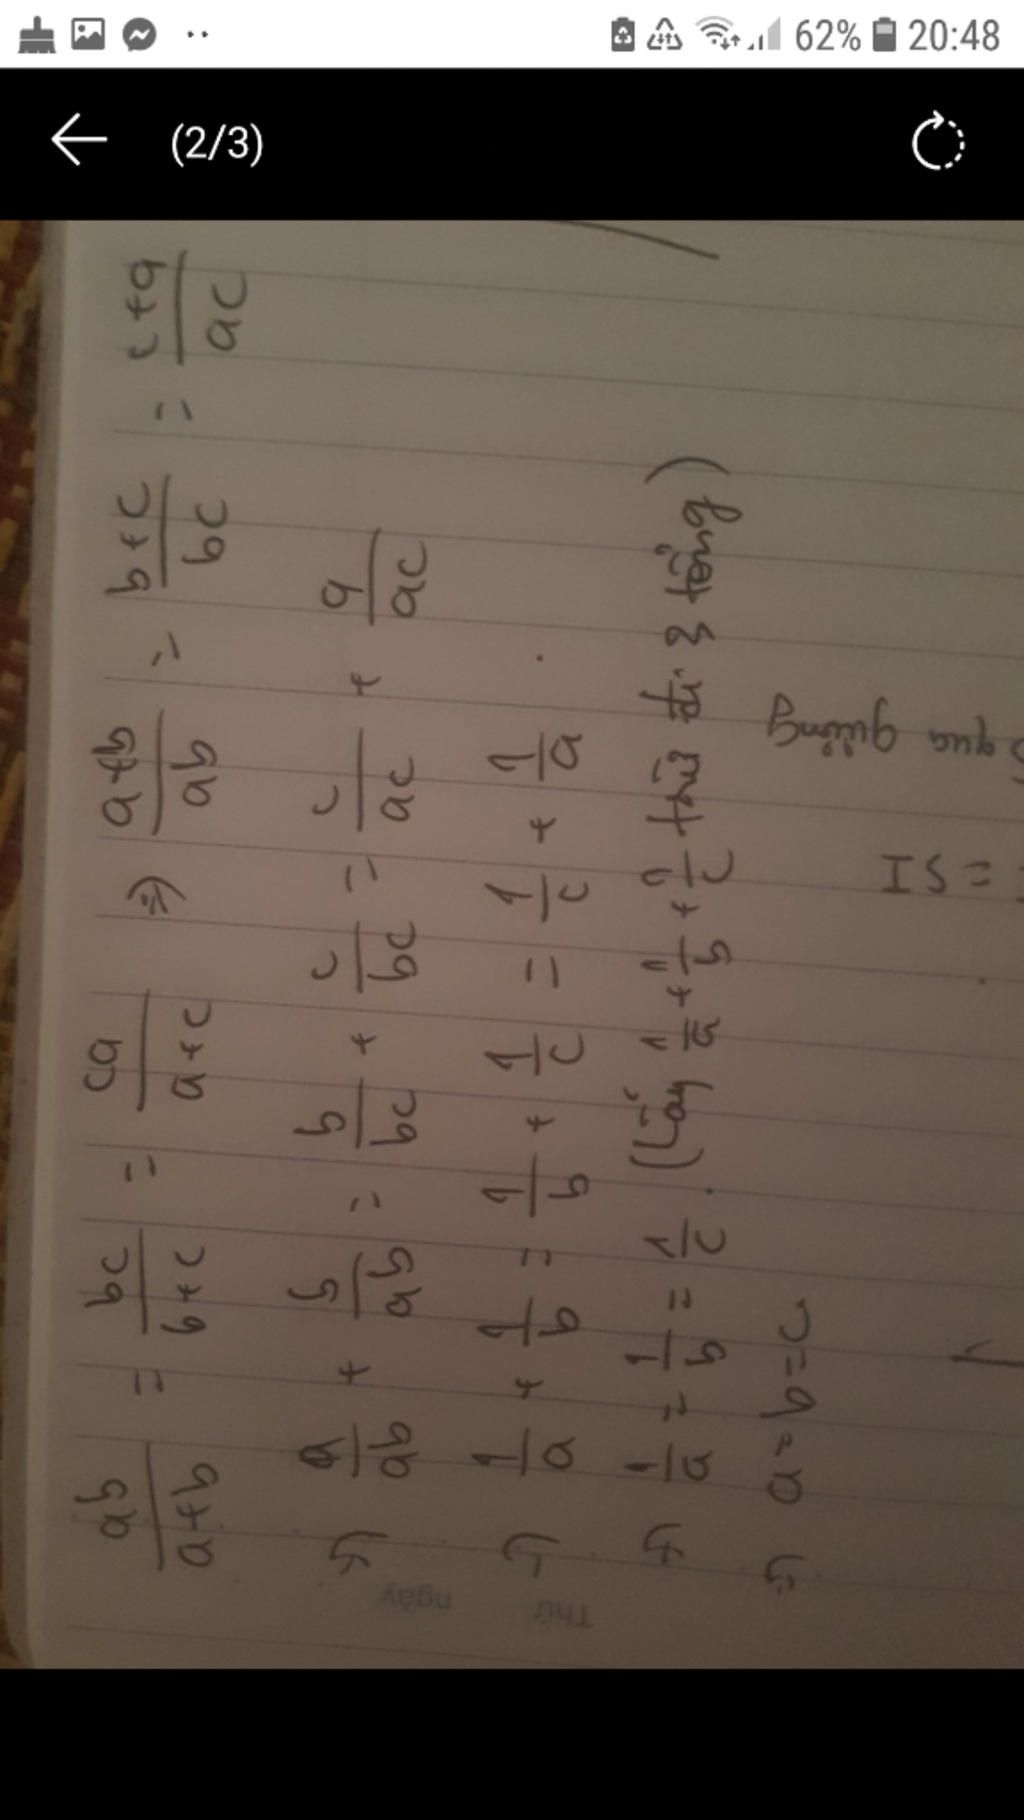 62% 20:48
(2/3)
ab/a+b = bc/b+c = ca/a+c ⇒ a+b/ab = b+c/bc = c+a/ac
↳ a/ab + b/ab = b/bc + c/bc = c/ac + a/ac
↳ 1/a + 1/b = 1/b + 1/c = 1/c + 1/a
↳ 1/a = 1/b = 1/c . (Lấy 1/a + 1/b + 1/c trừ đi 3 tổng)
↳ a = b = c
Thứ ngày
qua quãng
= 51